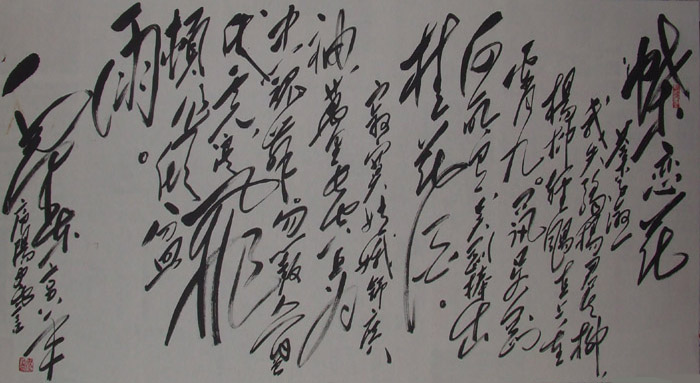 蝶恋花
答李淑一
我失骄杨君失柳,
杨柳轻飏直上重
霄九。问讯吴刚
何所有吴刚捧出
桂花酒。
寂寞嫦娥舒广
袖,万里长空且为
忠魂舞。忽报人间曾
伏虎泪飞
顿作倾盆
雨。